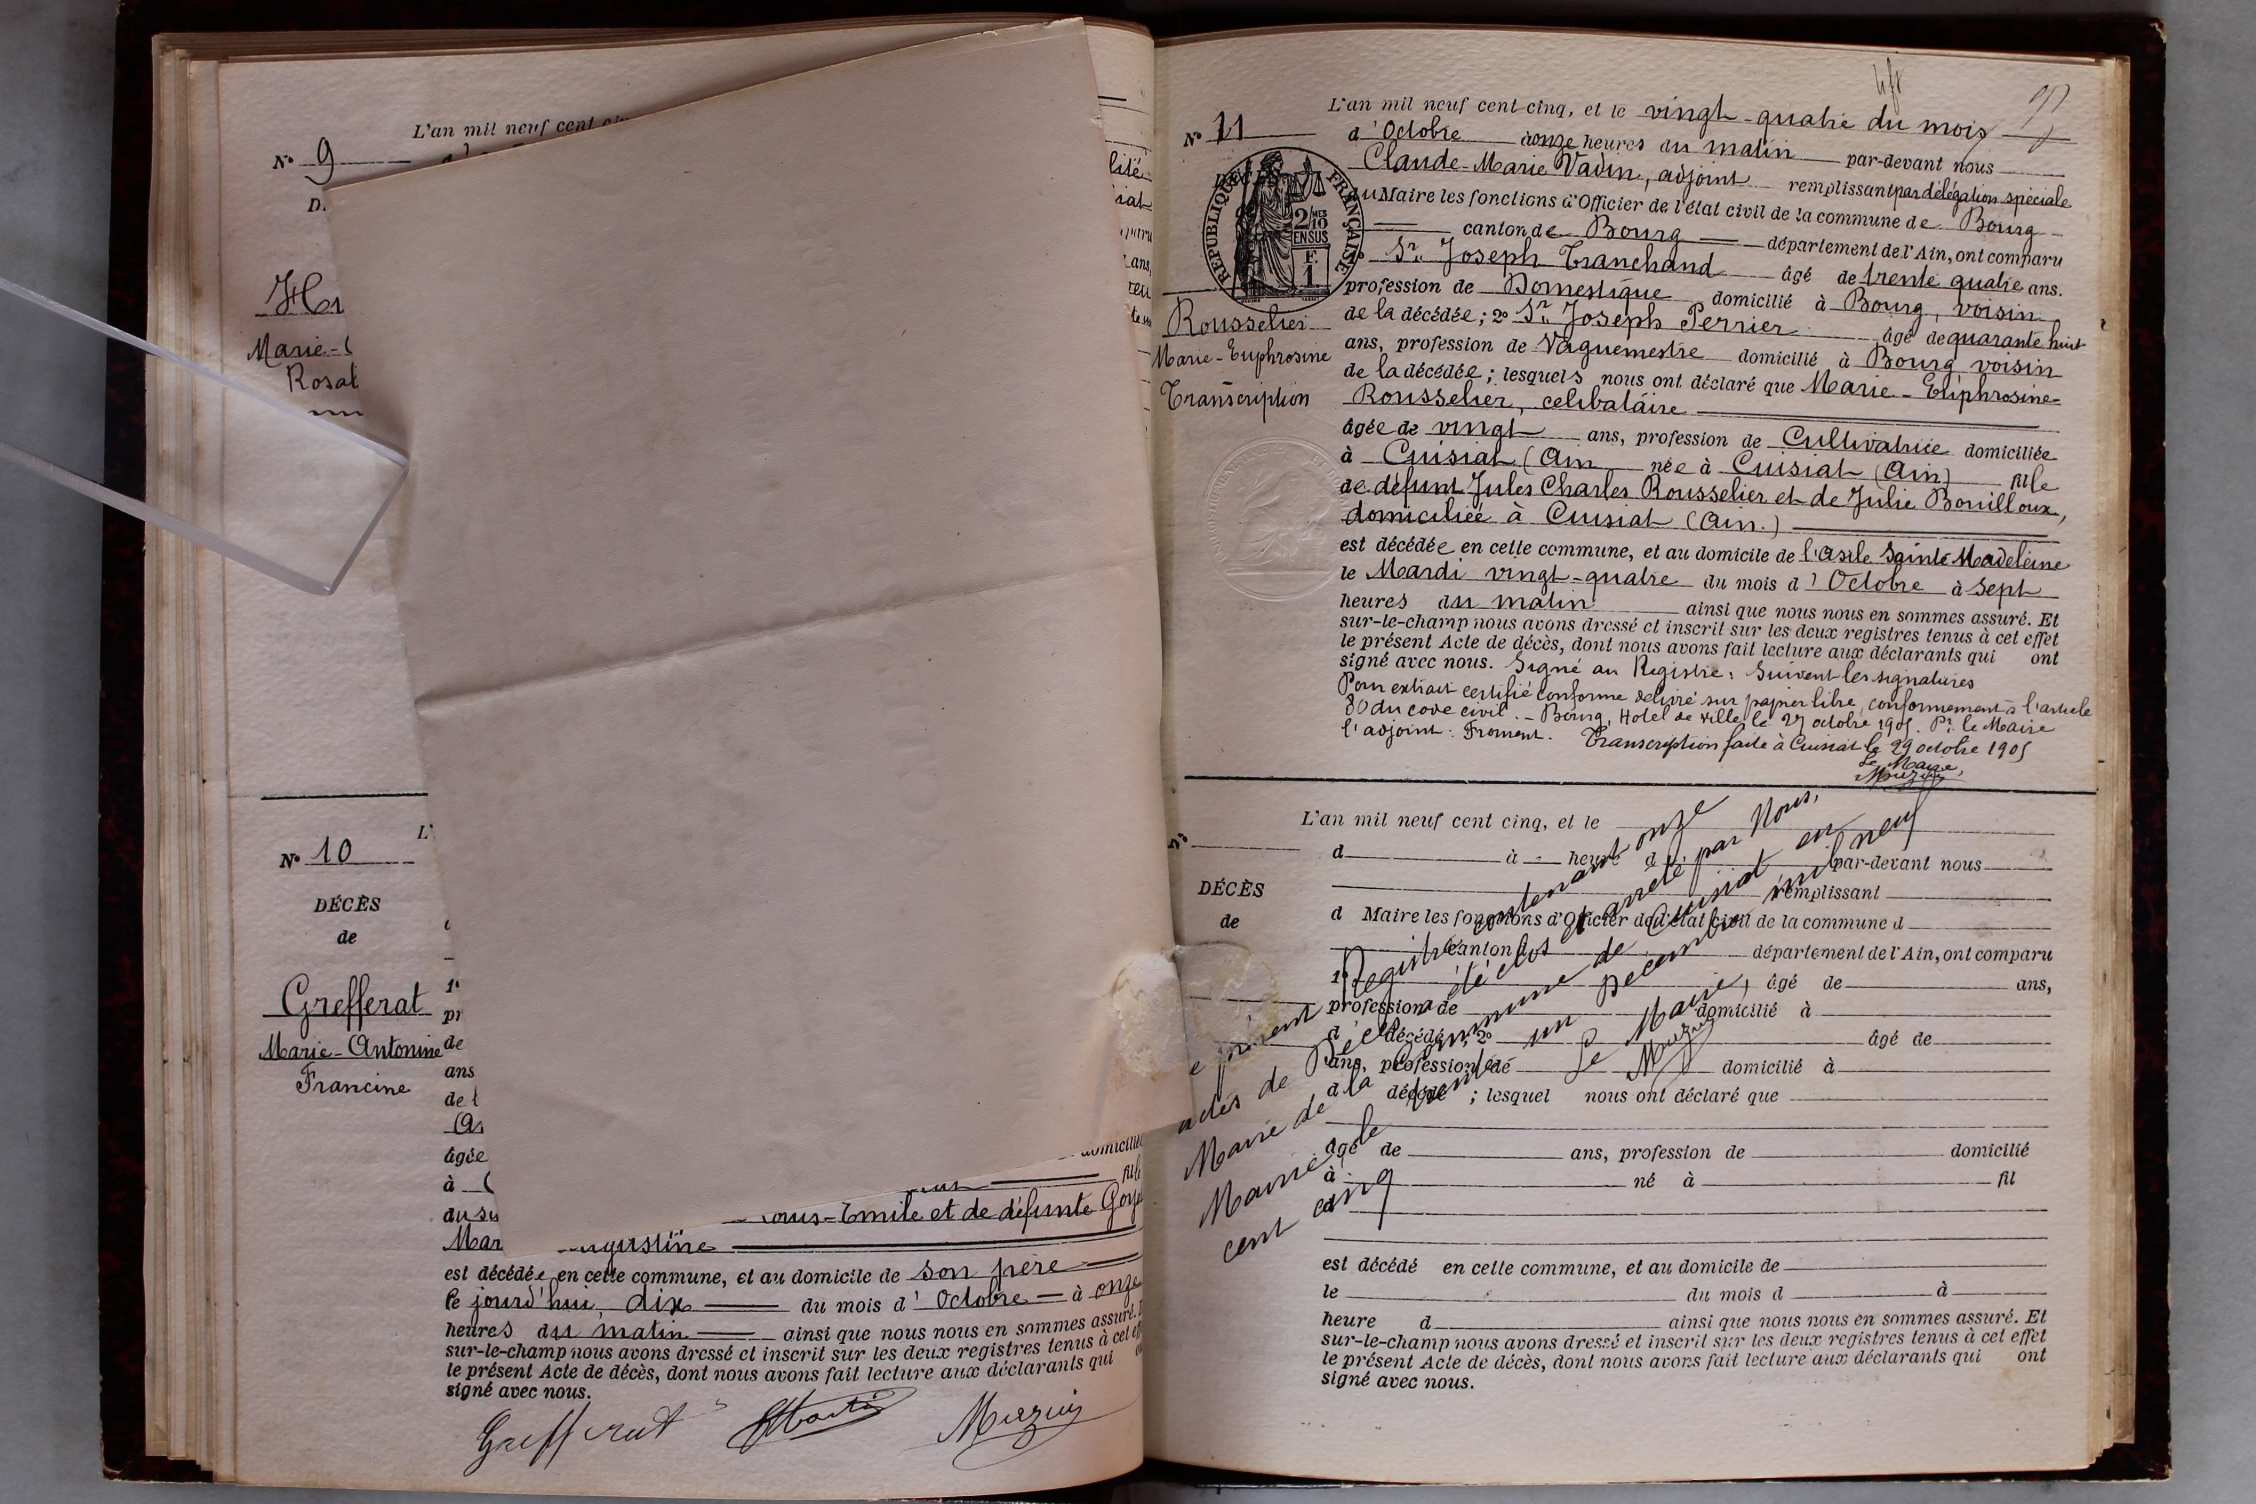 L'an mil neuf cent
N° 9
Marie-
Rosal
N° 10
DÉCÈS
de
Grefferat
Marie-Antonine
Francine
de
ans
âgée
à
fille
Louis-Emile et de défunte
Augustine
est décédée en cette commune, et au domicile de son père
le jourd'hui, dix du mois d'Octobre à onze
heures du matin ainsi que nous nous en sommes assuré.
sur-le-champ nous avons dressé et inscrit sur les deux registres tenus à cet
le présent Acte de décès, dont nous avons fait lecture aux déclarants qui
signé avec nous.
Grefferat
Muzuy
N° 11
RÉPUBLIQUE FRANÇAISE
2/10MES
EN SUS
F.
1
Rousselier
Marie-Euphrosine
Transcription
L'an mil neuf cent cinq, et le vingt-quatre du mois
d'Octobre à onze heures du matin par-devant nous
Claude-Marie Vadin, adjoint remplissant par délégation spéciale
du Maire les fonctions d'Officier de l'état civil de la commune de Bourg
canton de Bourg département de l'Ain, ont comparu
Sr. Joseph Tranchand âgé de trente quatre ans.
profession de Domestique domicilié à Bourg, voisin
de la décédée; 2° Sr. Joseph Perrier âgé de quarante huit
ans, profession de Vaguemestre domicilié à Bourg voisin
de la décédée; lesquels nous ont déclaré que Marie-Euphrosine
Rousselier, célibataire
âgée de vingt ans, profession de Cultivatrice domiciliée
à Cuisiat (Ain née à Cuisiat (Ain) fille
de défunt Jules Charles Rousselier et de Julie Bouilloux,
domiciliée à Cuisiat (Ain.)
est décédée en cette commune, et au domicile de l'asile Sainte Madeleine
le Mardi vingt-quatre du mois d'Octobre à sept
heures du matin ainsi que nous nous en sommes assuré. Et
sur-le-champ nous avons dressé et inscrit sur les deux registres tenus à cet effet
le présent Acte de décès, dont nous avons fait lecture aux déclarants qui ont
signé avec nous. Signé au Registre: Suivent les signatures
Pour extrait certifié conforme délivré sur papier libre, conformément à l'article
80 du code civil. - Bourg, Hotel de ville le 27 octobre 1905. Pr. le Maire
l'adjoint: Froment. Transcription faite à Cuisiat le 29 octobre 1905
Le Maire,
Muzuy
N°
DÉCÈS
de
L'an mil neuf cent cinq, et le
d à heure d par-devant nous
remplissant
d Maire les fonctions d'Officier de l'état civil de la commune d
canton d département de l'Ain, ont comparu
1° âgé de ans,
profession de domicilié à
d décédé; 2° âgé de
ans, profession de domicilié à
d décédé; lesquel nous ont déclaré que
âgé de ans, profession de domicilié
à né à fil
d
est décédé en cette commune, et au domicile de
le du mois d à
heure d ainsi que nous nous en sommes assuré. Et
sur-le-champ nous avons dressé et inscrit sur les deux registres tenus à cet effet
le présent Acte de décès, dont nous avons fait lecture aux déclarants qui ont
signé avec nous.
e présent Registre contenant onze
actes de Décès a été clos et arrêté par Nous,
Maire de la Commune de Cuisiat en
Mairie le trente un Décembre mil neuf
cent cinq
Le Maire,
Muzuy